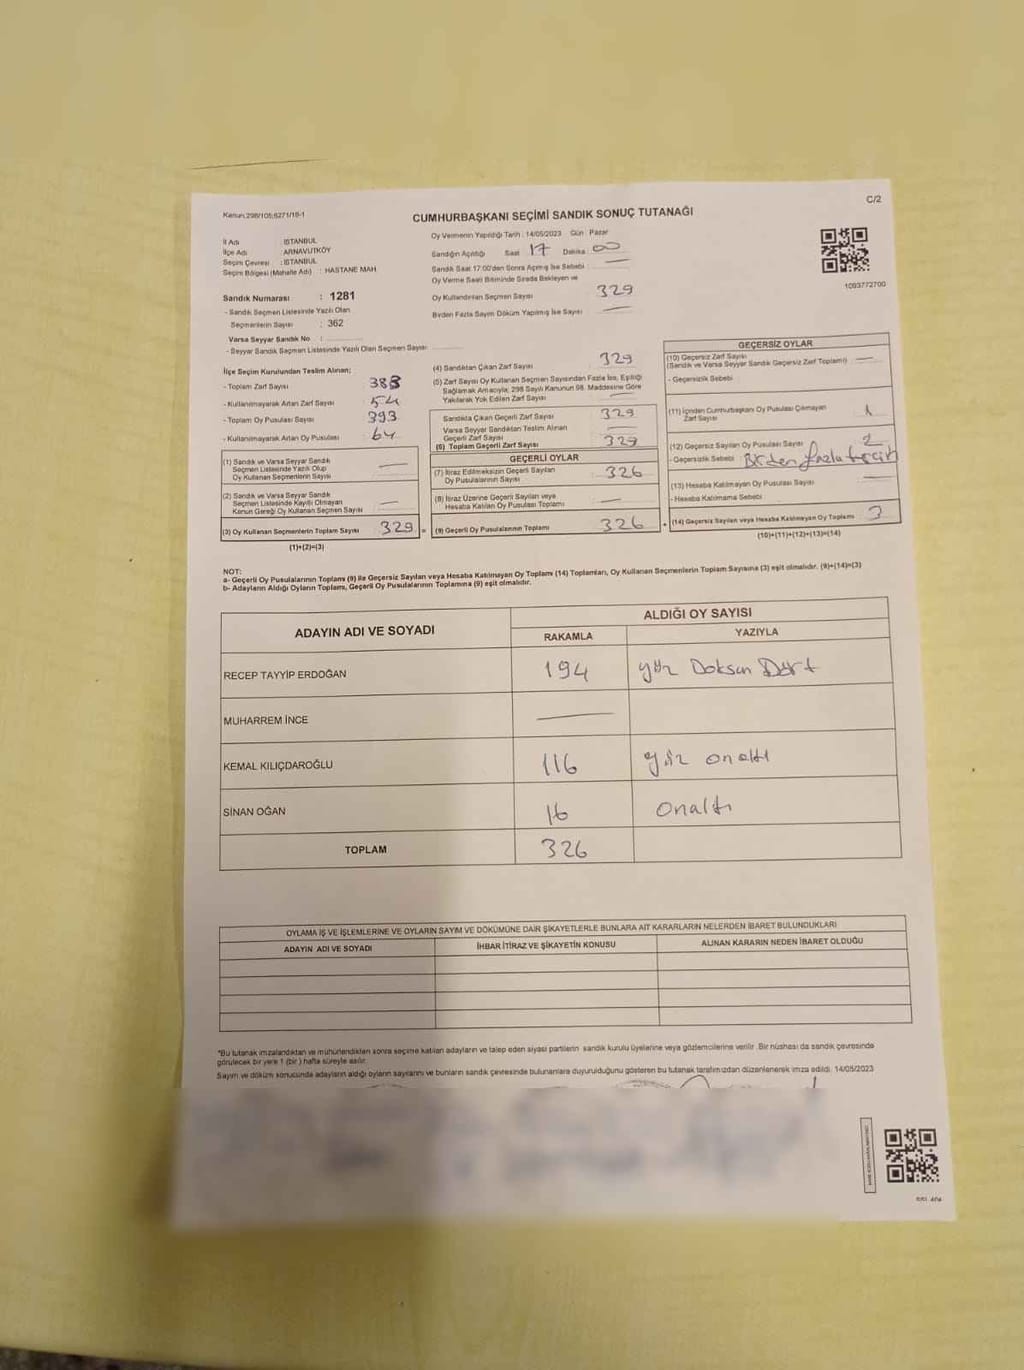 C/2
Kanun:298/105;6271/18-1
CUMHURBAŞKANI SEÇİMİ SANDIK SONUÇ TUTANAĞI
İl Adı : İSTANBUL
İlçe Adı : ARNAVUTKÖY
Seçim Çevresi : İSTANBUL
Seçim Bölgesi (Mahalle Adı) : HASTANE MAH
Sandık Numarası : 1281
- Sandık Seçmen Listesinde Yazılı Olan
Seçmenlerin Sayısı : 362
Varsa Seyyar Sandık No :
- Seyyar Sandık Seçmen Listesinde Yazılı Olan Seçmen Sayısı
Oy Vermenin Yapıldığı Tarih : 14/05/2023 Gün : Pazar
Sandığın Açıldığı Saat 17 Dakika 00
Sandık Saat 17:00'den Sonra Açılmış İse Sebebi : —
Oy Verme Saati Bitiminde Sırada Bekleyen ve
Oy Kullandırılan Seçmen Sayısı 329
Birden Fazla Sayım Döküm Yapılmış İse Sayısı —
1093772700
İlçe Seçim Kurulundan Teslim Alınan;
- Toplam Zarf Sayısı 383
- Kullanılmayarak Artan Zarf Sayısı 54
- Toplam Oy Pusulası Sayısı 393
- Kullanılmayarak Artan Oy Pusulası 64
(1) Sandık ve Varsa Seyyar Sandık
Seçmen Listesinde Yazılı Olup
Oy Kullanan Seçmenlerin Sayısı —
(2) Sandık ve Varsa Seyyar Sandık
Seçmen Listesinde Kayıtlı Olmayan
Kanun Gereği Oy Kullanan Seçmen Sayısı —
(3) Oy Kullanan Seçmenlerin Toplam Sayısı 329 =
(1)+(2)=(3)
(4) Sandıktan Çıkan Zarf Sayısı 329
(5) Zarf Sayısı Oy Kullanan Seçmen Sayısından Fazla İse, Eşitliği
Sağlamak Amacıyla; 298 Sayılı Kanunun 98. Maddesine Göre
Yakılarak Yok Edilen Zarf Sayısı —
Sandıkta Çıkan Geçerli Zarf Sayısı 329
Varsa Seyyar Sandıktan Teslim Alınan
Geçerli Zarf Sayısı —
(6) Toplam Geçerli Zarf Sayısı 329
GEÇERLİ OYLAR
(7) İtiraz Edilmeksizin Geçerli Sayılan
Oy Pusulalarının Sayısı 326
(8) İtiraz Üzerine Geçerli Sayılan veya
Hesaba Katılan Oy Pusulası Toplamı —
(9) Geçerli Oy Pusulalarının Toplamı 326 +
GEÇERSİZ OYLAR
(10) Geçersiz Zarf Sayısı
(Sandık ve Varsa Seyyar Sandık Geçersiz Zarf Toplamı) —
- Geçersizlik Sebebi
(11) İçinden Cumhurbaşkanı Oy Pusulası Çıkmayan
Zarf Sayısı 1
(12) Geçersiz Sayılan Oy Pusulası Sayısı 2
- Geçersizlik Sebebi : Birden fazla tercih
(13) Hesaba Katılmayan Oy Pusulası Sayısı —
- Hesaba Katılmama Sebebi
(14) Geçersiz Sayılan veya Hesaba Katılmayan Oy Toplamı 3
(10)+(11)+(12)+(13)=(14)
NOT:
a- Geçerli Oy Pusulalarının Toplamı (9) ile Geçersiz Sayılan veya Hesaba Katılmayan Oy Toplamı (14) Toplamları, Oy Kullanan Seçmenlerin Toplam Sayısına (3) eşit olmalıdır. (9)+(14)=(3)
b- Adayların Aldığı Oyların Toplamı, Geçerli Oy Pusulalarının Toplamına (9) eşit olmalıdır.
ADAYIN ADI VE SOYADI
ALDIĞI OY SAYISI
RAKAMLA YAZIYLA
RECEP TAYYİP ERDOĞAN 194 yüz Doksan Dört
MUHARREM İNCE —
KEMAL KILIÇDAROĞLU 116 yüz onaltı
SİNAN OĞAN 16 onaltı
TOPLAM 326
OYLAMA İŞ VE İŞLEMLERİNE VE OYLARIN SAYIM VE DÖKÜMÜNE DAİR ŞİKAYETLERLE BUNLARA AİT KARARLARIN NELERDEN İBARET BULUNDUKLARI
ADAYIN ADI VE SOYADI İHBAR İTİRAZ VE ŞİKAYETİN KONUSU ALINAN KARARIN NEDEN İBARET OLDUĞU
*Bu tutanak imzalandıktan ve mühürlendikten sonra seçime katılan adayların ve talep eden siyasi partilerin sandık kurulu üyelerine veya gözlemcilerine verilir. Bir nüshası da sandık çevresinde
görülecek bir yere 1 (bir) hafta süreyle asılır.
Sayım ve döküm sonucunda adayların aldığı oyların sayılarını ve bunların sandık çevresinde bulunanlara duyurulduğunu gösteren bu tutanak tarafımızdan düzenlenerek imza edildi. 14/05/2023